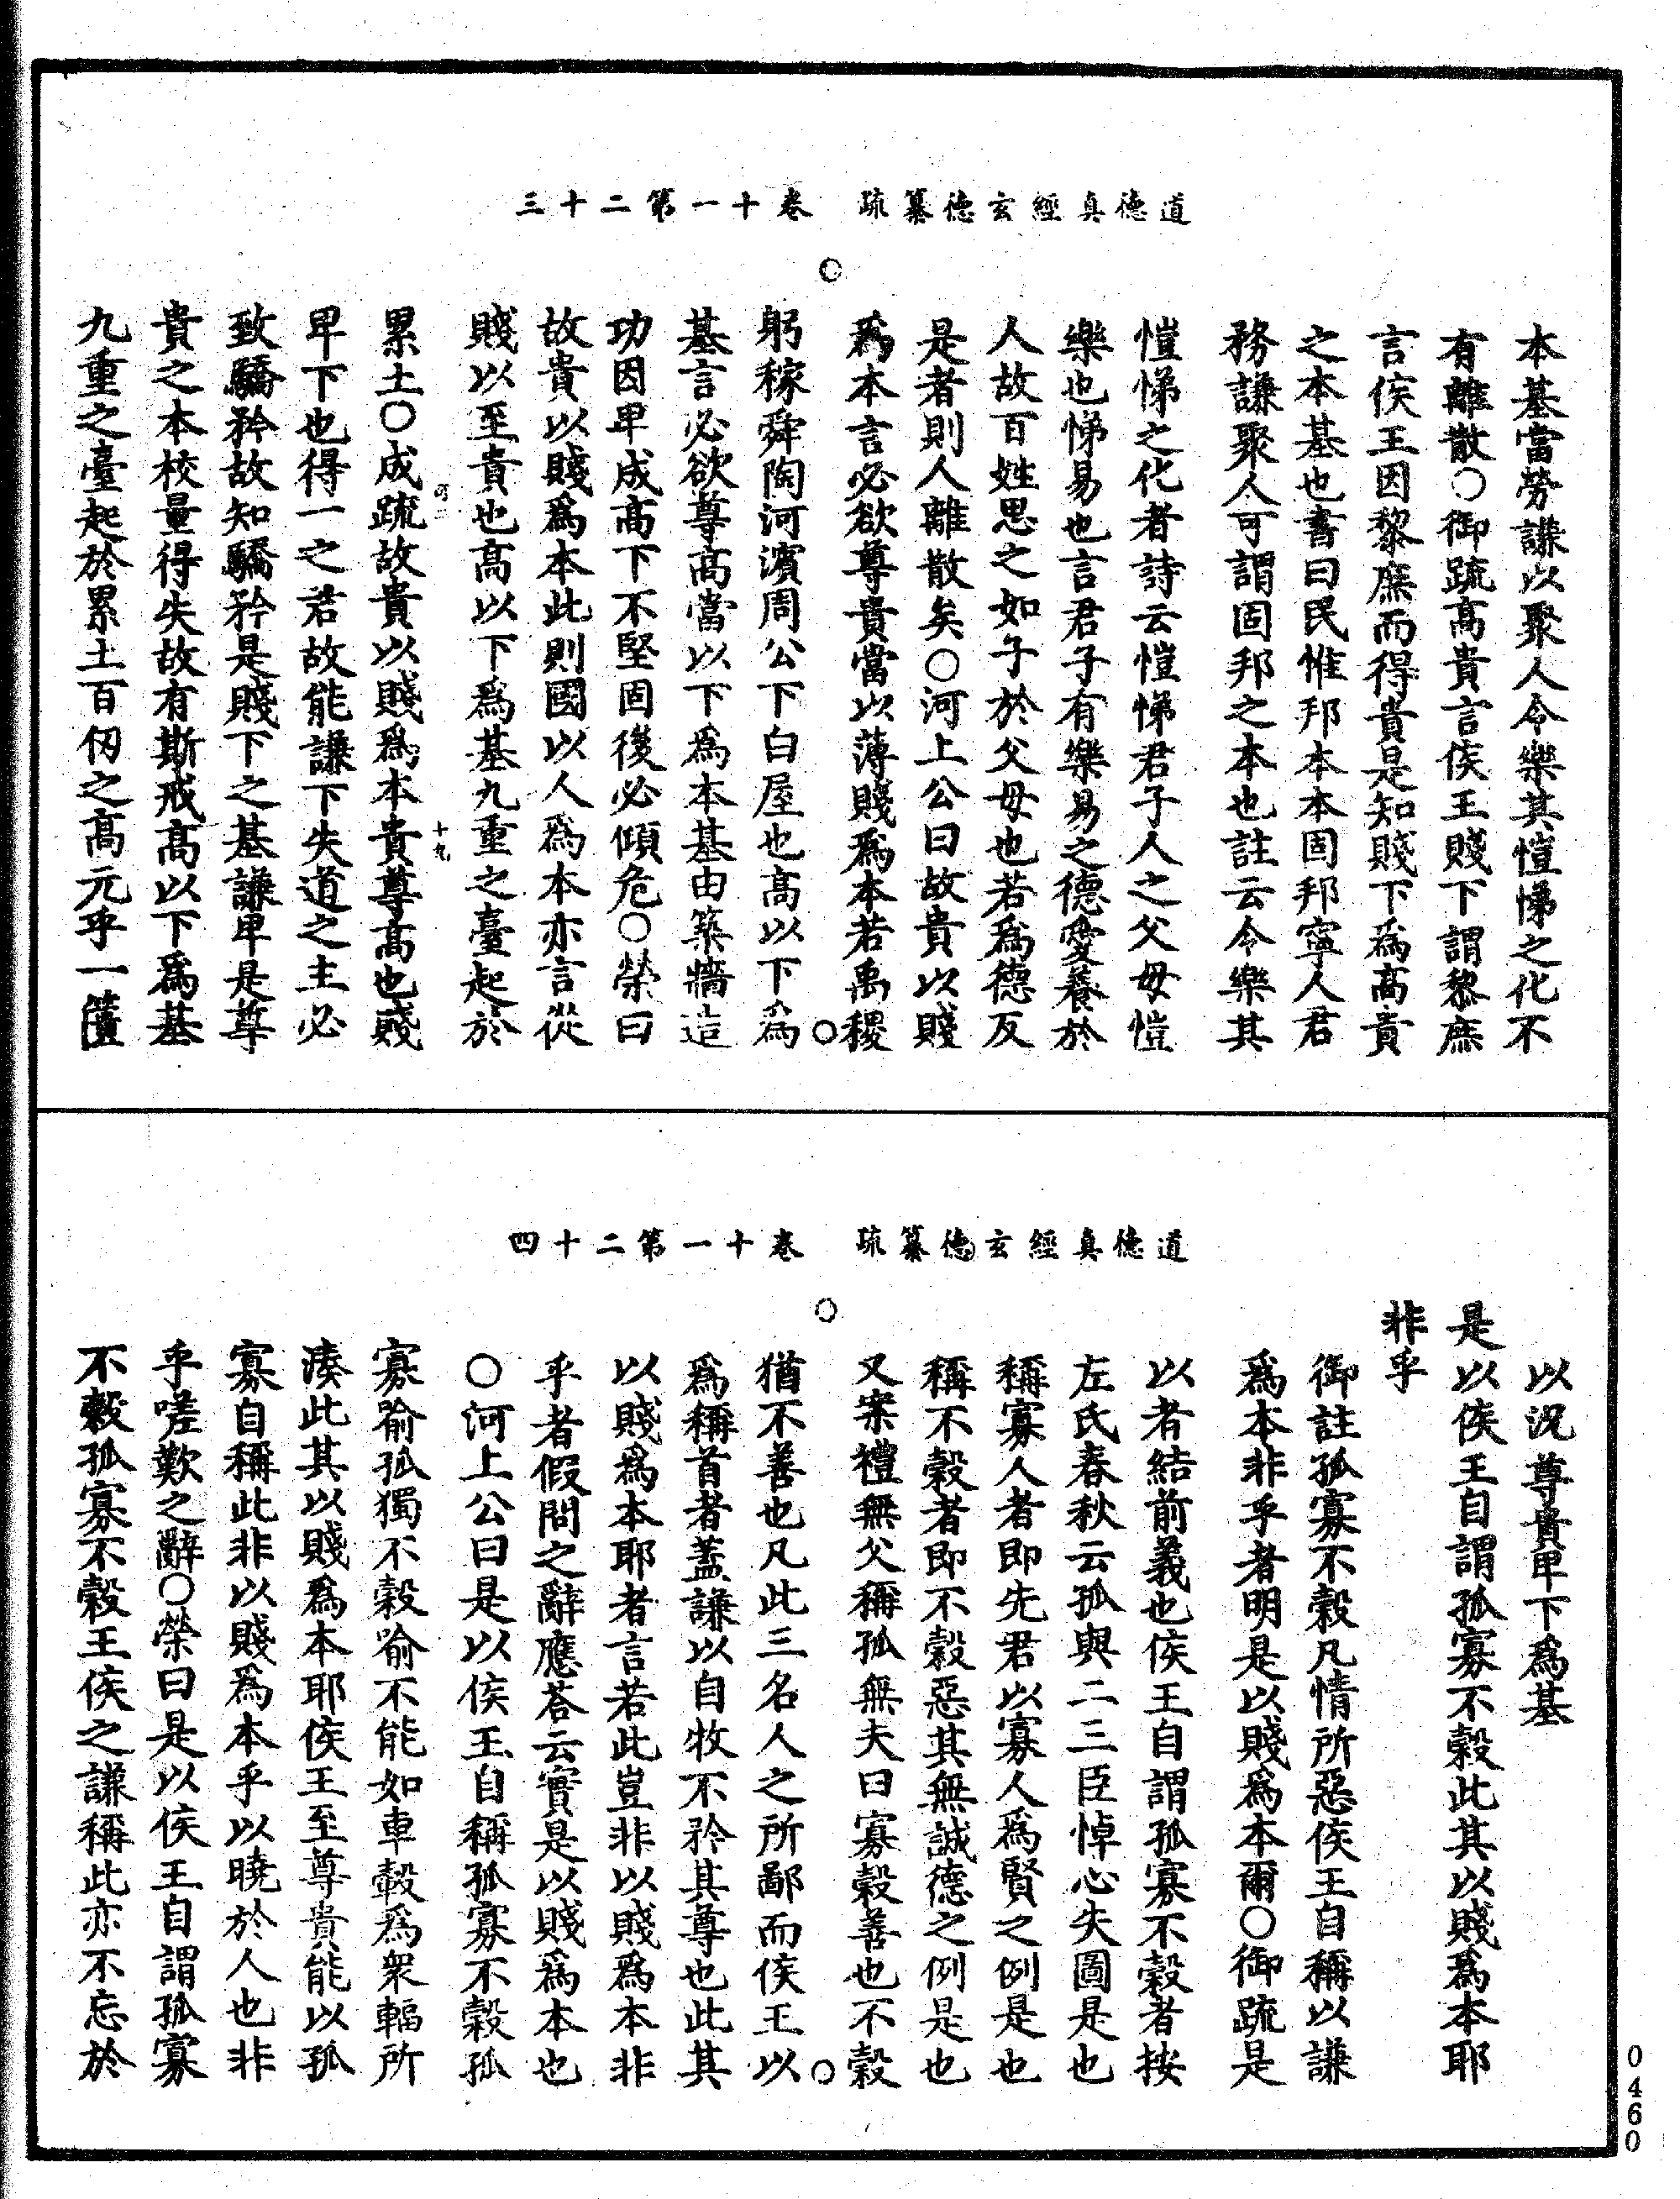 道德真經玄德纂疏　卷十一第二十三
本基當勞謙以聚人令樂其愷悌之化不
有離散○御疏高貴言侯王賤下謂黎庶
言侯王因黎庶而得貴是知賤下為高貴
之本基也書曰民惟邦本本固邦寧人君
務謙聚人可謂固邦之本也註云令樂其
愷悌之化者詩云愷悌君子人之父母愷
樂也悌易也言君子有樂易之德愛養於
人故百姓思之如子於父母也若為德反
是者則人離散矣○河上公曰故貴以賤
為本言必欲尊貴當以薄賤為本若禹稷
躬稼舜陶河濱周公下白屋也高以下為
基言必欲尊高當以下為本基由築牆造
功因卑成高下不堅固後必傾危○榮曰
故貴以賤為本此則國以人為本亦言從
賤以至貴也高以下為基九重之臺起於
累土○成疏故貴以賤為本貴尊高也賤
卑下也得一之君故能謙下失道之主必
致驕矜故知驕矜是賤下之基謙卑是尊
貴之本校量得失故有斯戒高以下為基
九重之臺起於累土百仞之高元乎一簣
道德真經玄德纂疏　卷十一第二十四
以況尊貴卑下為基
是以侯王自謂孤寡不穀此其以賤為本耶
非乎
御註孤寡不穀凡情所惡侯王自稱以謙
為本非乎者明是以賤為本爾○御疏是
以者結前義也侯王自謂孤寡不穀者按
左氏春秋云孤與二三臣悼心失圖是也
稱寡人者即先君以寡人為賢之例是也
稱不穀者即不穀惡其無誠德之例是也
又案禮無父稱孤無夫曰寡穀善也不穀
猶不善也凡此三名人之所鄙而侯王以
為稱首者蓋謙以自牧不矜其尊也此其
以賤為本耶者言若此豈非以賤為本非
乎者假問之辭應荅云實是以賤為本也
○河上公曰是以侯王自稱孤寡不穀孤
寡喻孤獨不穀喻不能如車轂為眾輻所
湊此其以賤為本耶侯王至尊貴能以孤
寡自稱此非以賤為本乎以曉於人也非
乎嗟歎之辭○榮曰是以侯王自謂孤寡
不穀孤寡不穀王侯之謙稱此亦不忘於
0460